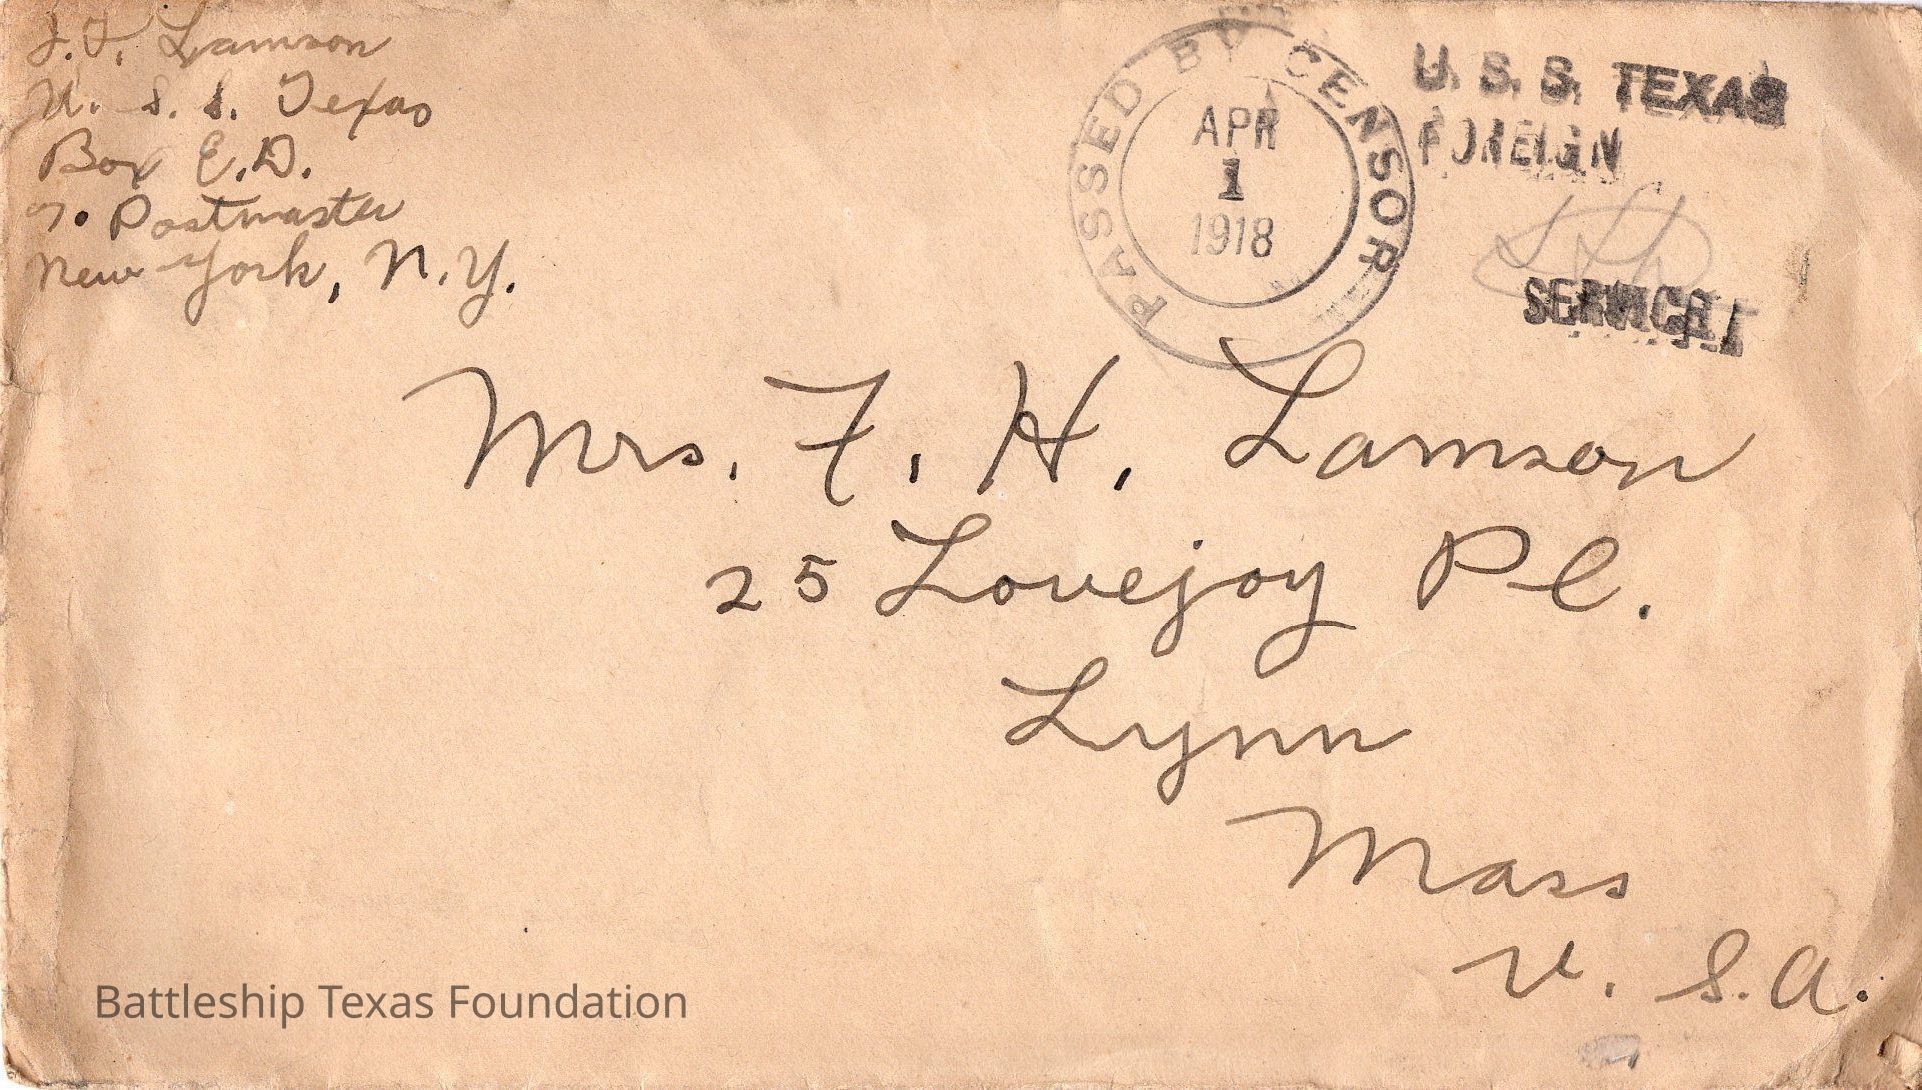 J.F. Lamson
U. S. S. Texas
Box E.D.
Postmaster
New York, N.Y.
PASSED BY CENSOR
APR
1
1918
U. S. S. TEXAS
FOREIGN
SERVICE
Mrs. F. H. Lamson
25 Lovejoy Pl.
Lynn
Mass
U. S. A.
Battleship Texas Foundation